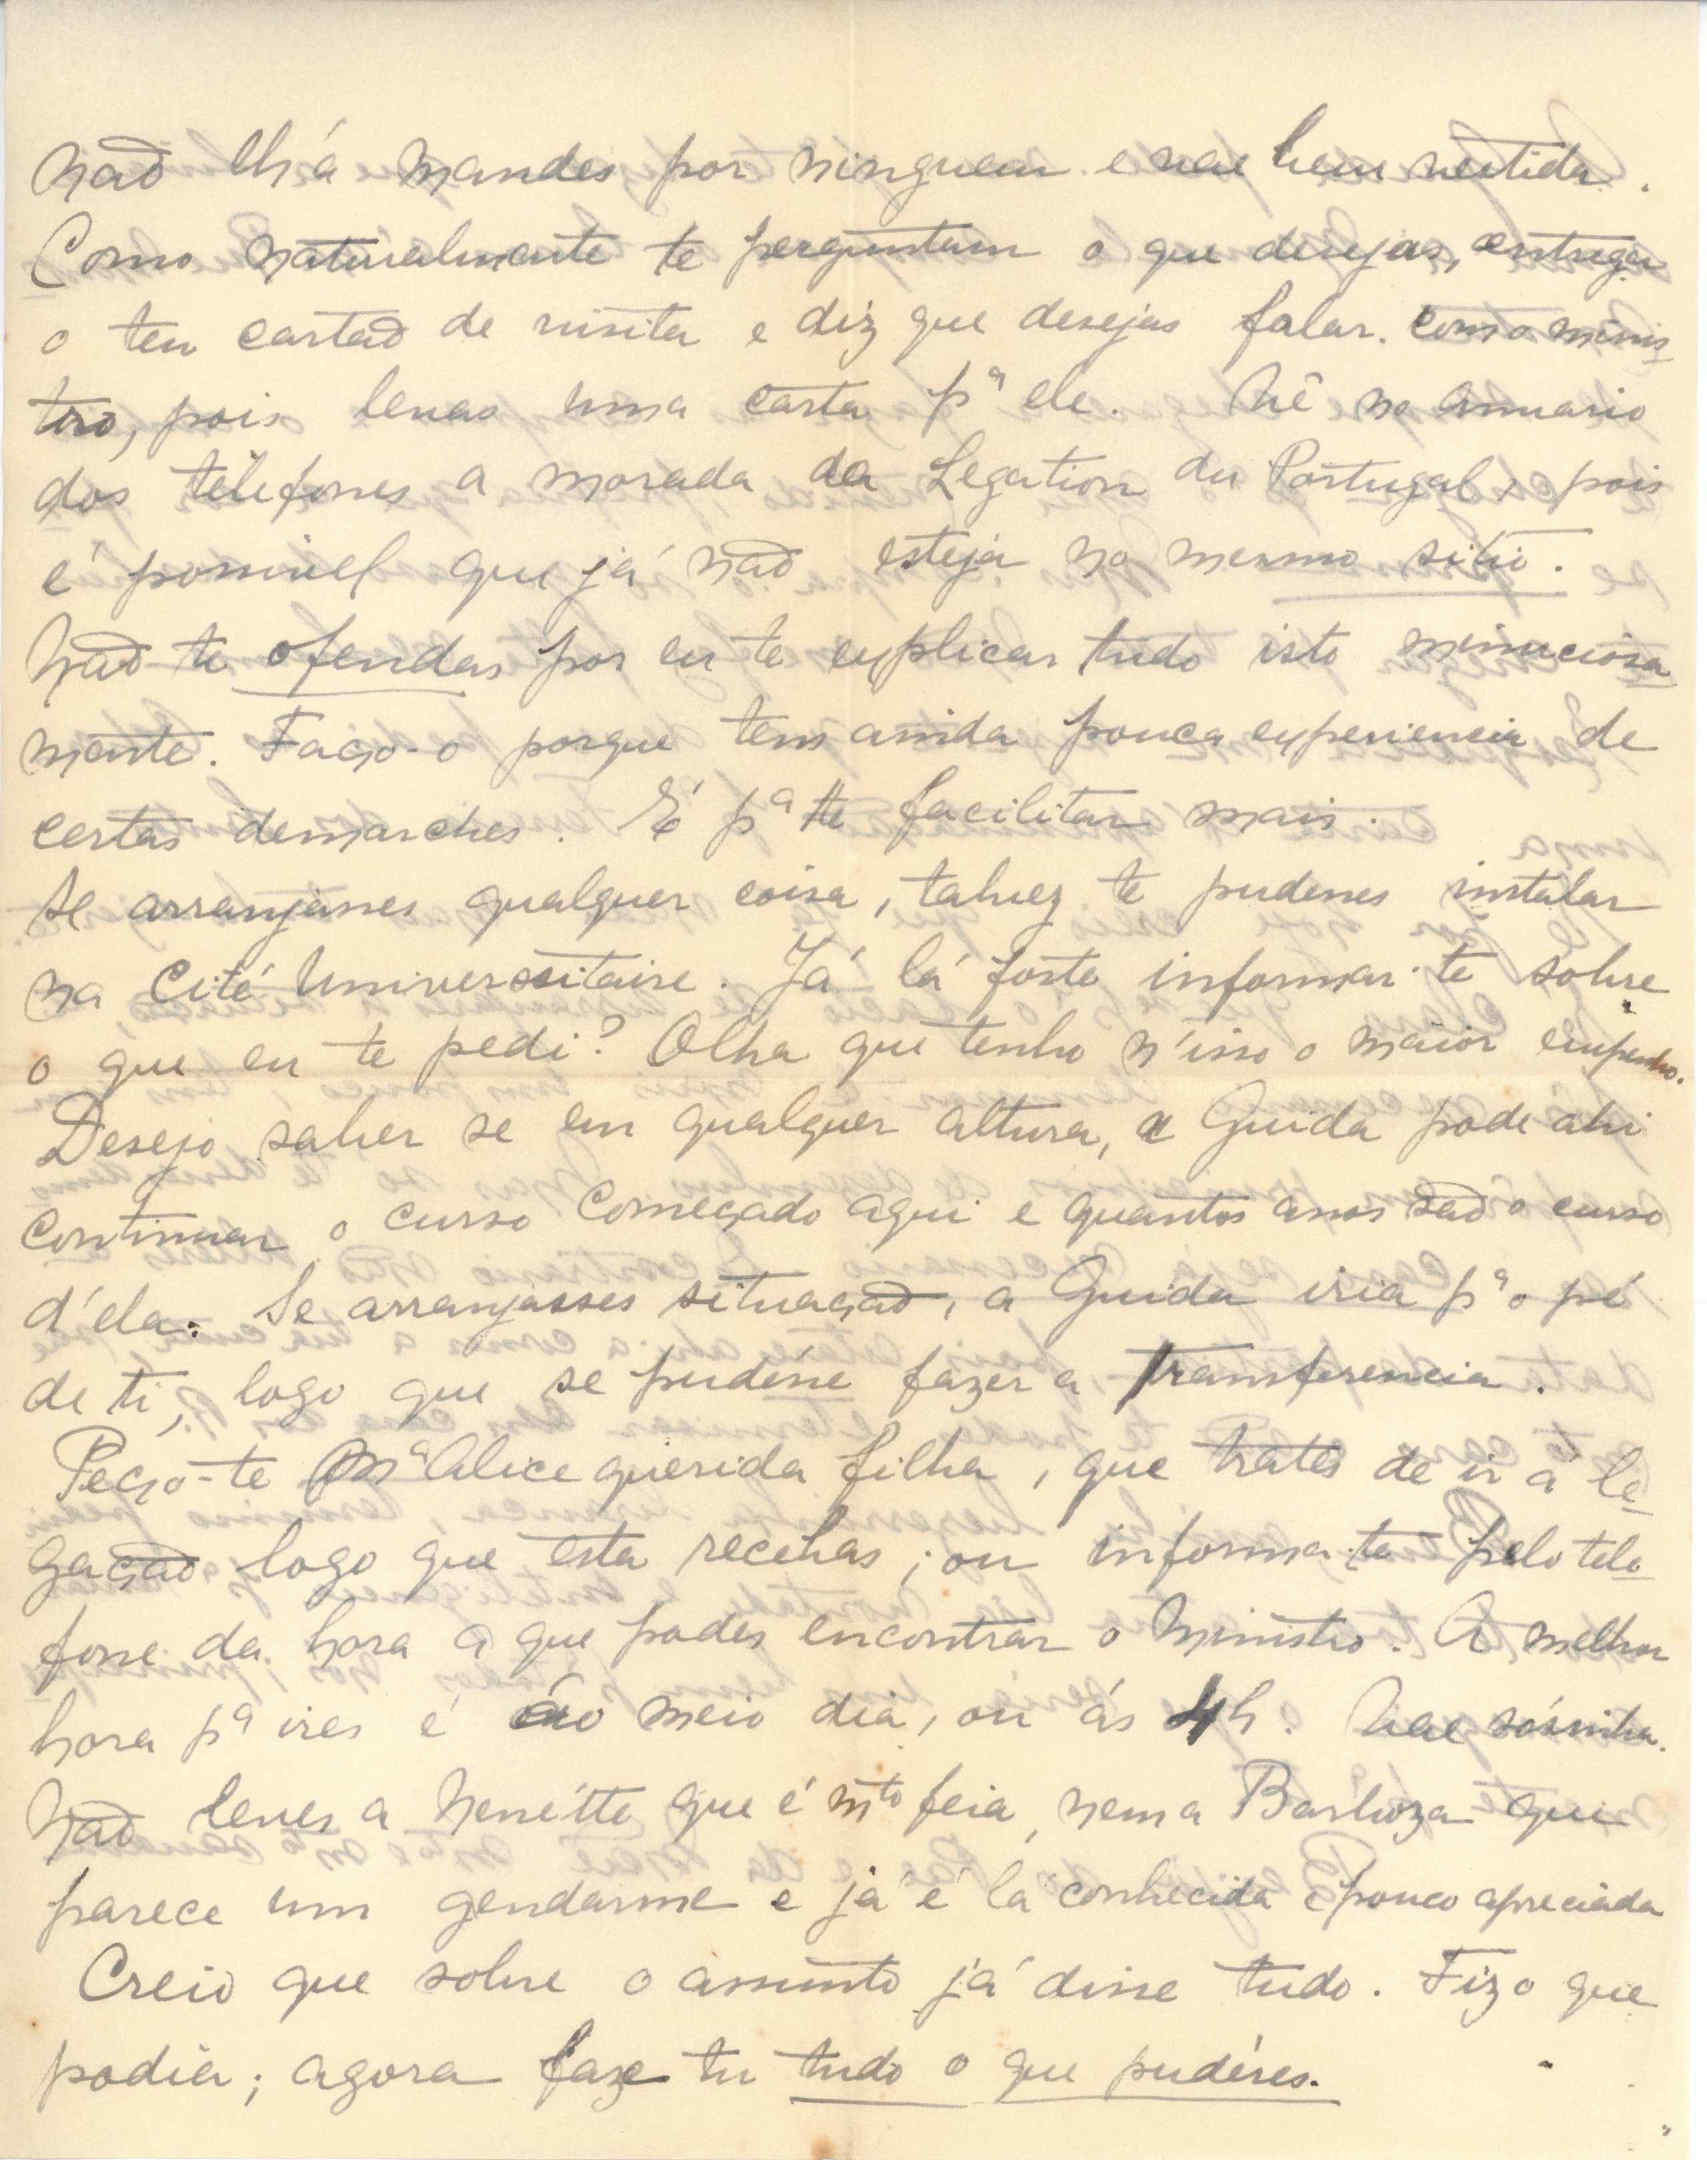 Não lh'a mandes por ninguem e vae bem vestida.
Como naturalmente te perguntam o que desejas, entrega
o teu cartão de visita e diz que desejas falar com o minis-
tro, pois levas uma carta pª ele. Vê no anuario
dos telefones a morada da Legation du Portugal, pois
é possivel que já não esteja no mesmo sitio.
Não te ofendas por eu te explicar tudo isto minuciosa-
mente. Faço-o porque tens ainda pouca experiencia de
certas demarches. É pª te facilitar mais.
Se arranjasses qualquer coisa, talvez te pudesses instalar
na Cité Universitaire. Já lá foste informar-te sobre
o que eu te pedi? Olha que tenho n'isso o maior empenho.
Desejo saber se em qualquer altura, a Guida pode ahi
continuar o curso começado aqui e quantos anos são o curso
d'ela. Se arranjasses situação, a Guida iria pª o pé
de ti, logo que se pudésse fazer a transferencia.
Peço-te Mª Alice querida filha, que trates de ir á le-
gação logo que esta recebas; ou informa-te pelo tele-
fone da hora a que podes encontrar o Ministro. A melhor
hora pª ires é ao meio dia, ou ás 4h. Vae sósinha.
Não leves a Nenétte que é mto feia, nem a Barboza que
parece um gendarme e já é lá conhecida e pouco apreciada
Creio que sobre o assunto já disse tudo. Fiz o que
podia; agora faze tu tudo o que pudéres.